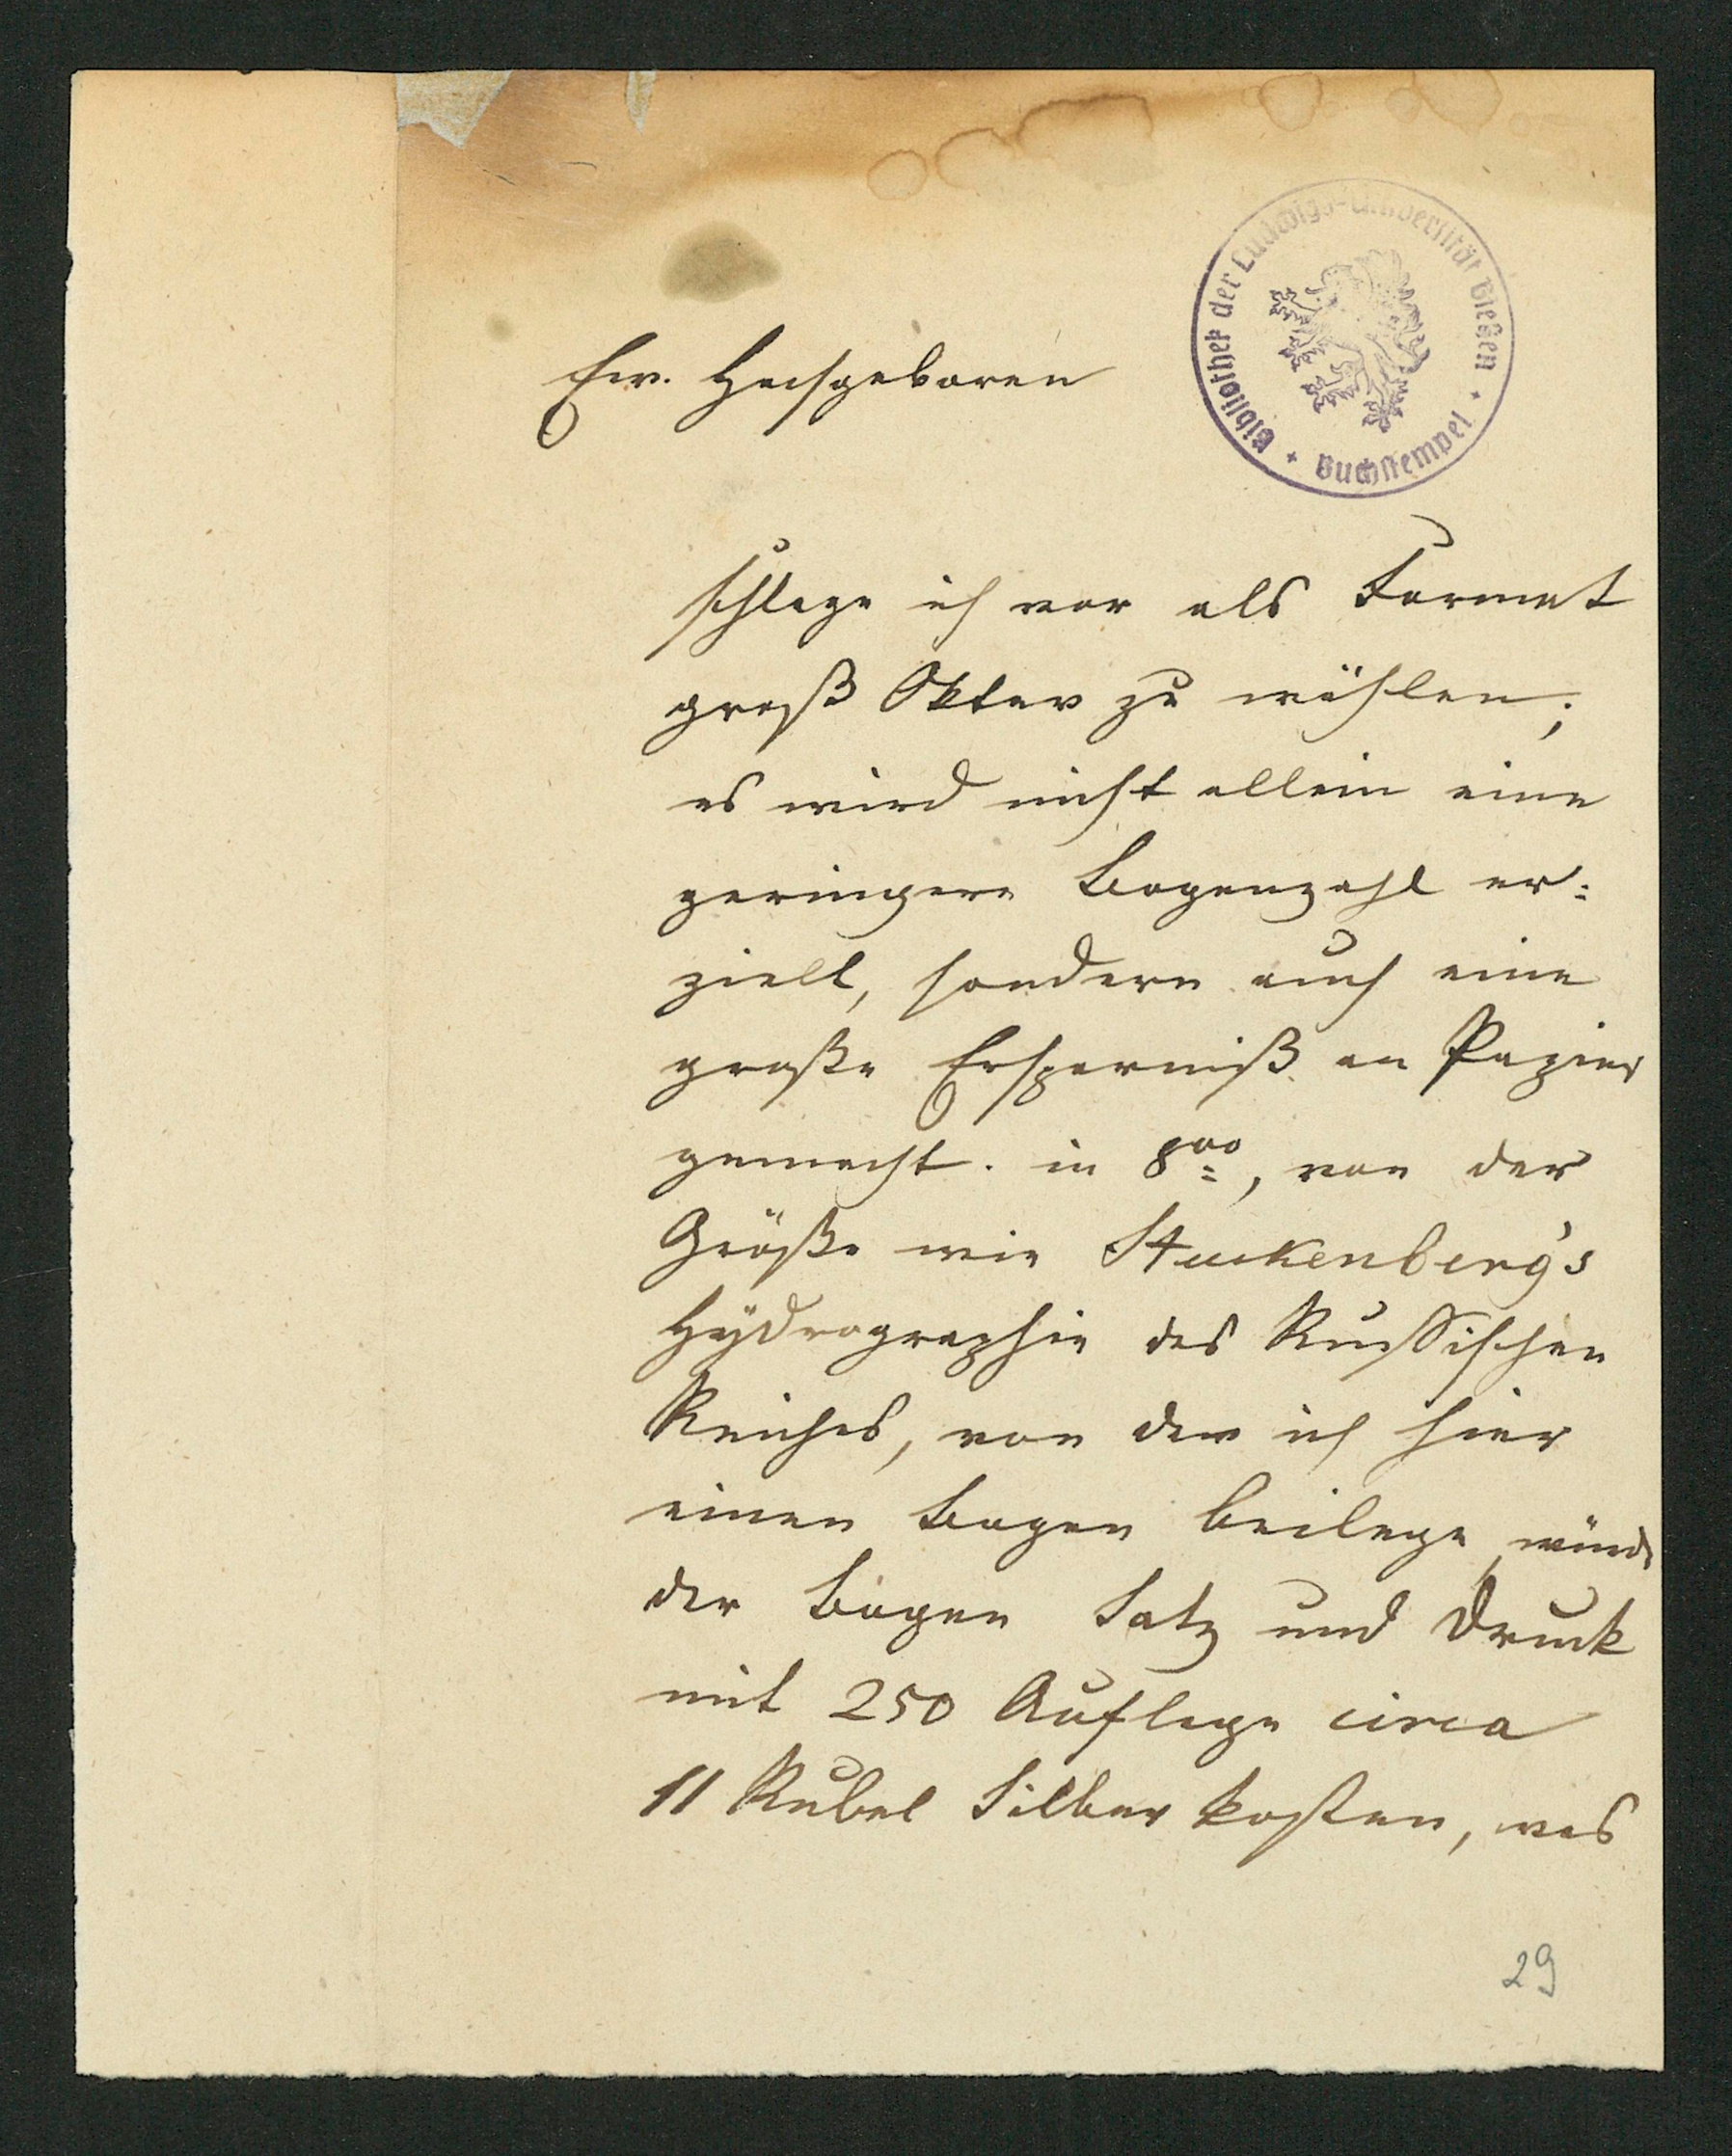 Bibliothek der Ludwigs-Universität Gießen
Buchstempel
Ew. Hochgeboren
schlage ich vor als Format
groß Oktav zu wählen;
es wird nicht allein eine
geringere Bogenzahl er=
zielt, sondern auch eine
große Ersparniß an Papier
gemacht. in 8vo, von der
Größe wie Stuckenberg's
Hÿdrographie des Russischen
Reiches, von der ich hier
einen Bogen beilege, würde
der Bogen Satz und Druck
mit 250 Auflage circa
11 Rubel Silber kosten, was
29